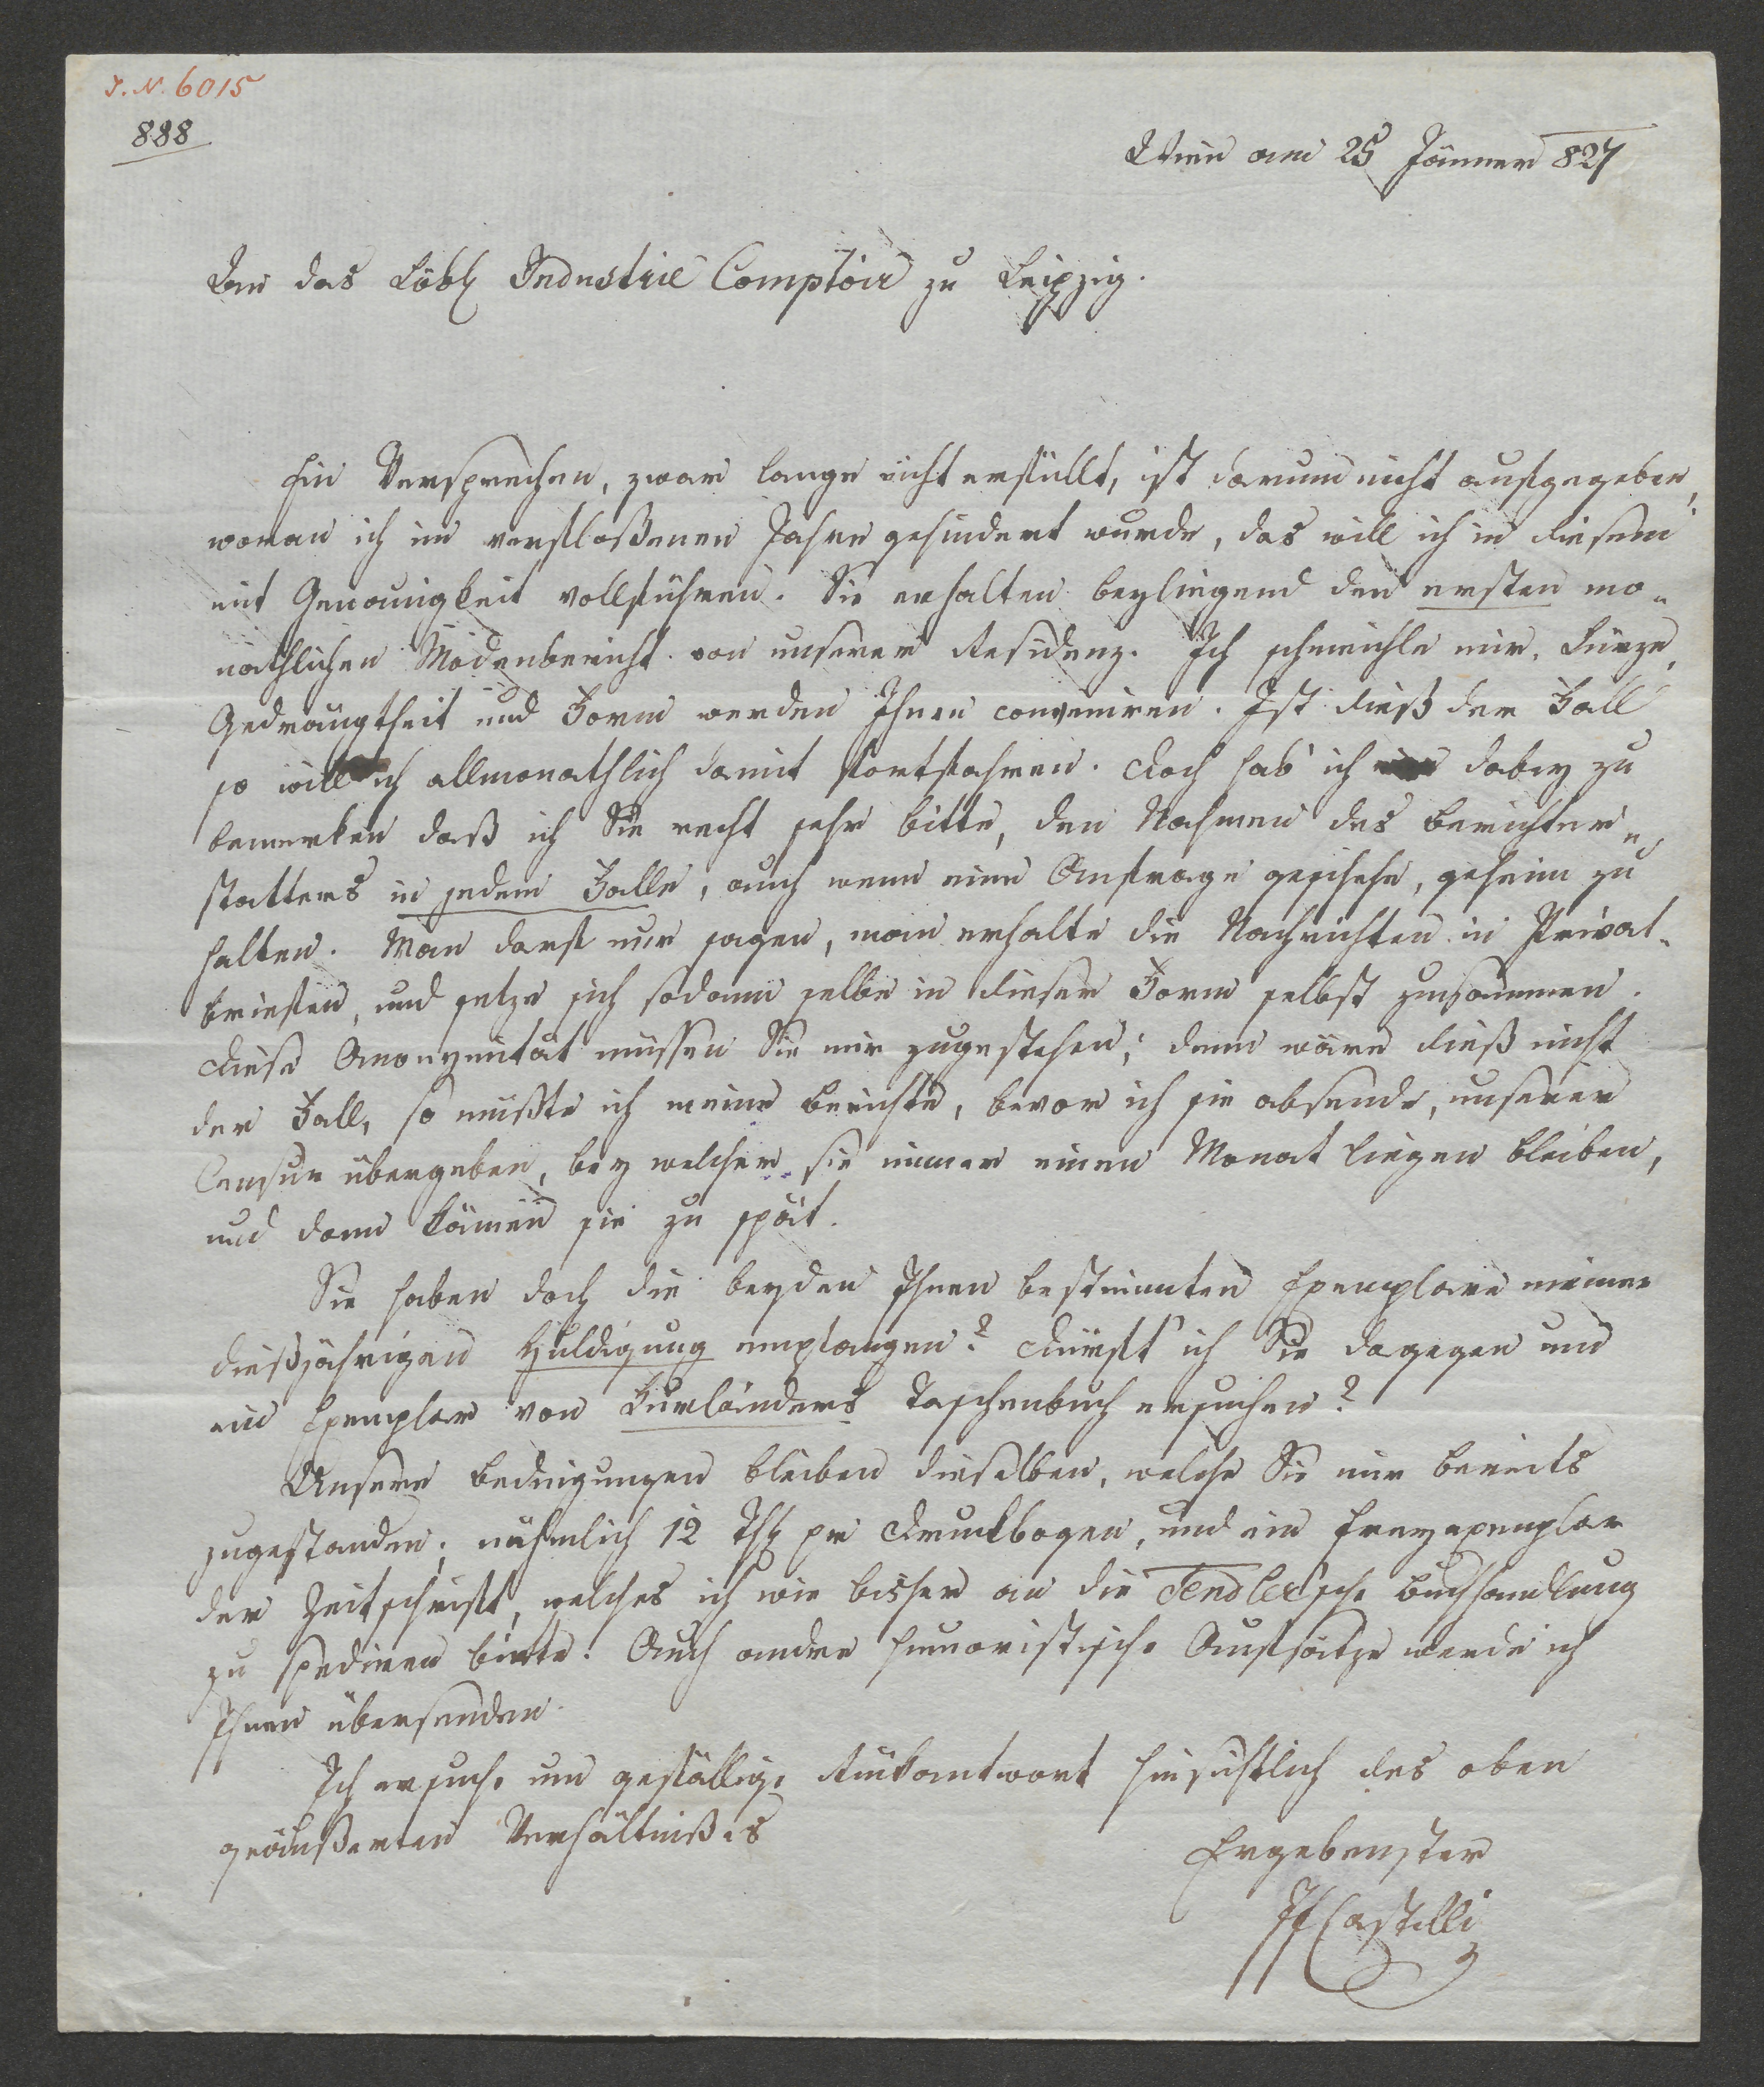 J. N. 6015
888
Wien am 25 Jänner 827
An das Löbl Industrie Comptoir zu Leipzig.
Ein Versprechen, zwar lange nicht erfüllt, ist darum nicht aufgegeben,
woran ich im verfloßenen Jahre gehindert wurde, das will ich in diesem
mit Genauigkeit vollführen. Sie erhalten beyliegend den ersten mo-
nathlichen Modenbericht von unserer Residenz. Ich schmeichle mir, Kürze,
Gedrängtheit und Form werden Ihnen conveniren. Ist dieß der Fall
so will ich allmonathlich damit fortfahren. Doch hab' ich dabey zu
bemerken daß ich Sie recht sehr bitte, den Nahmen des Berichter-
statters in jedem Falle, auch wenn eine Anfrage geschehe, geheim zu
halten. Man darf nur sagen, man erhalte die Nachrichten in Privat-
briefen, und setze sich sodann selbe in dieser Form selbst zusammen.
Diese Anonymität müssen Sie mir zugestehen; denn wäre dieß nicht
der Fall, so müßte ich meine Berichte, bevor ich sie absende, unserer
Censur übergeben, bey welcher sie immer einen Monat liegen bleiben,
und dann kämen sie zu spät.
Sie haben doch die beyden Ihnen bestimmten Exemplare meiner
dießjährigen Huldigung empfangen? Dürft' ich Sie dagegen um
ein Exemplar von Kurländers Taschenbuch ersuchen?
Unsere Bedingungen bleiben dieselben, welche Sie mir bereits
zugestanden; nähmlich 12 Thl pr Druckbogen, und ein Freyexemplar
der Zeitschrift, welches ich wie bisher an die Tendler'sche Buchhandlung
zu spediren bitte. Auch andre humoristische Aufsätze werde ich
Ihnen übersenden.
Ich ersuche um gefällige Rückantwort hinsichtlich des oben
geäußerten Verhältnißes
Ergebenster
JfCastelli